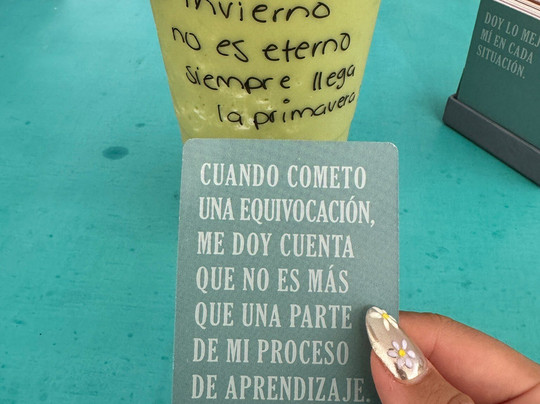 invierno
no es eterno
siempre llega
la primavera
DOY LO MEJ
MÍ EN CADA
SITUACIÓN.
CUANDO COMETO
UNA EQUIVOCACIÓN,
ME DOY CUENTA
QUE NO ES MÁS
QUE UNA PARTE
DE MI PROCESO
DE APRENDIZAJE.